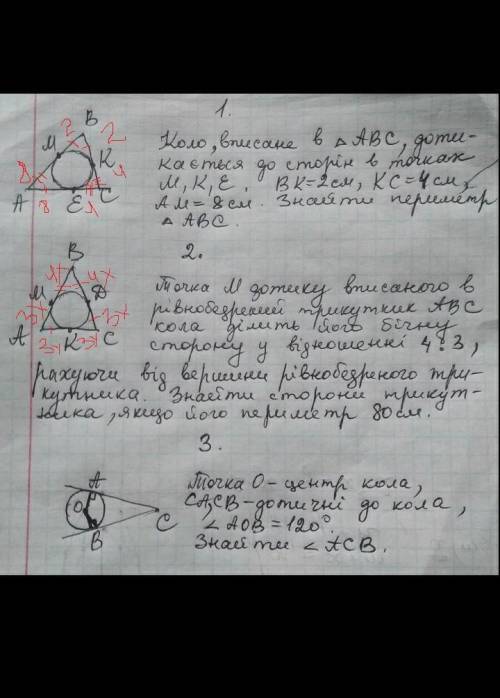 1.
Коло, вписане в △ ABC, доти-
кається до сторін в точках
M, K, E. BK=2см, KC=4см,
AM=8см. Знайти периметр
△ ABC.
B
2 2
M K
8 4
A 8 E 4 C
2.
Точка M дотику вписаного в
рівнобедрений трикутник ABC
кола ділить його бічну
сторону у відношенні 4:3,
рахуючи від вершини рівнобедреного три-
кутника. Знайти сторони трикут-
ника, якщо його периметр 80см.
B
4x 4x
M D
3x 3x
A 3x K 3x C
3.
Точка O - центр кола,
CA, CB - дотичні до кола,
∠AOB = 120°.
Знайти ∠ACB.
A
O
C
B